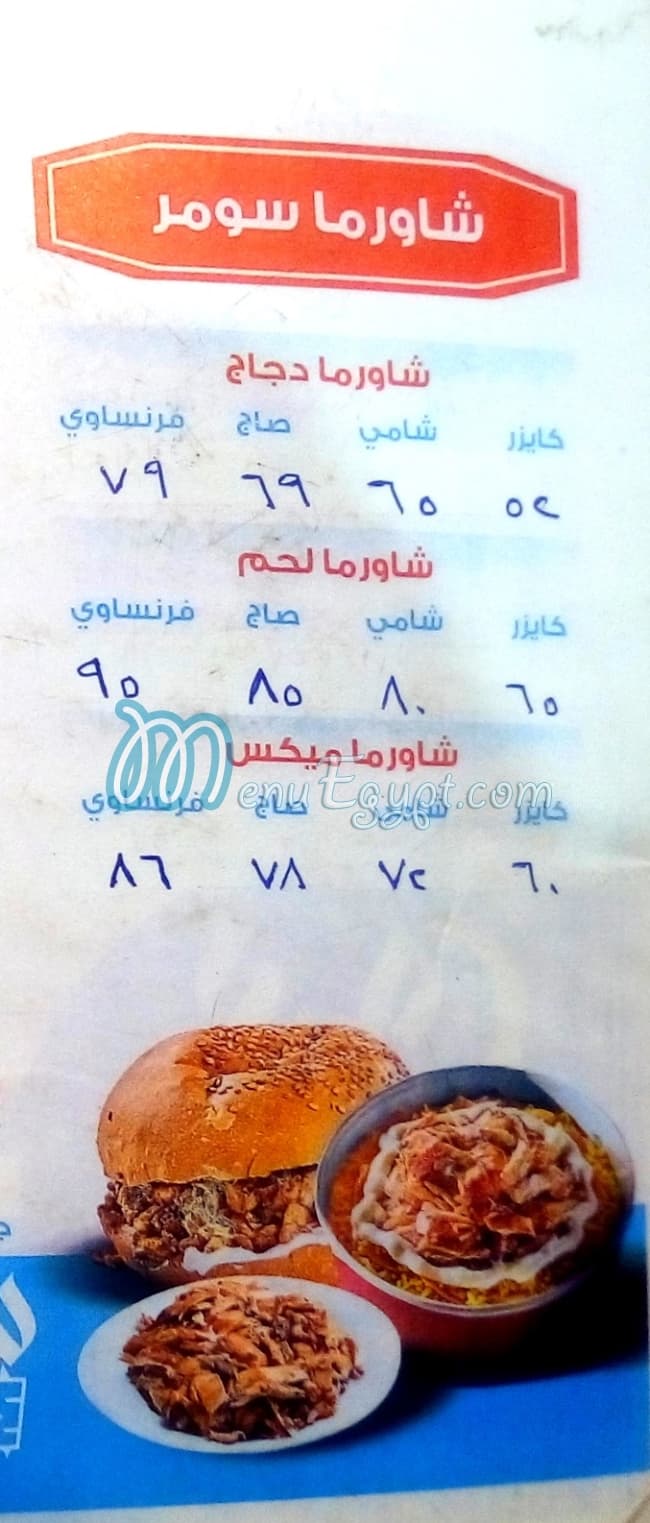 شاورما سومر
شاورما دجاج
كايزر شامي صاج فرنساوي
٥٢ ٦٥ ٦٩ ٧٩
شاورما لحم
كايزر شامي صاج فرنساوي
٦٥ ٨٠ ٨٥ ٩٥
شاورما ميكس
MenuEgypt.com
كايزر شامي صاج فرنساوي
٦٠ ٧٢ ٧٨ ٨٦